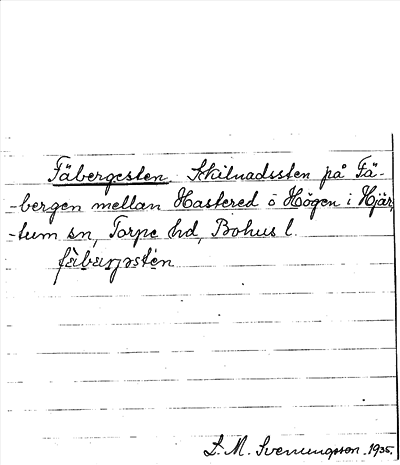 Fäbergesten. Skilnadssten på Fä-
-bergen mellan Hastered o Högen i Hjär,
-tum sn, Torpe hd, Bohus l.
fäbærjəstén
L. M. Svenungsson. 1935.